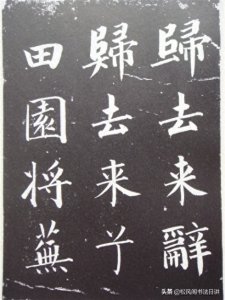 歸去来辭
歸去来兮
田園将蕪
头条 @松风阁书法日讲